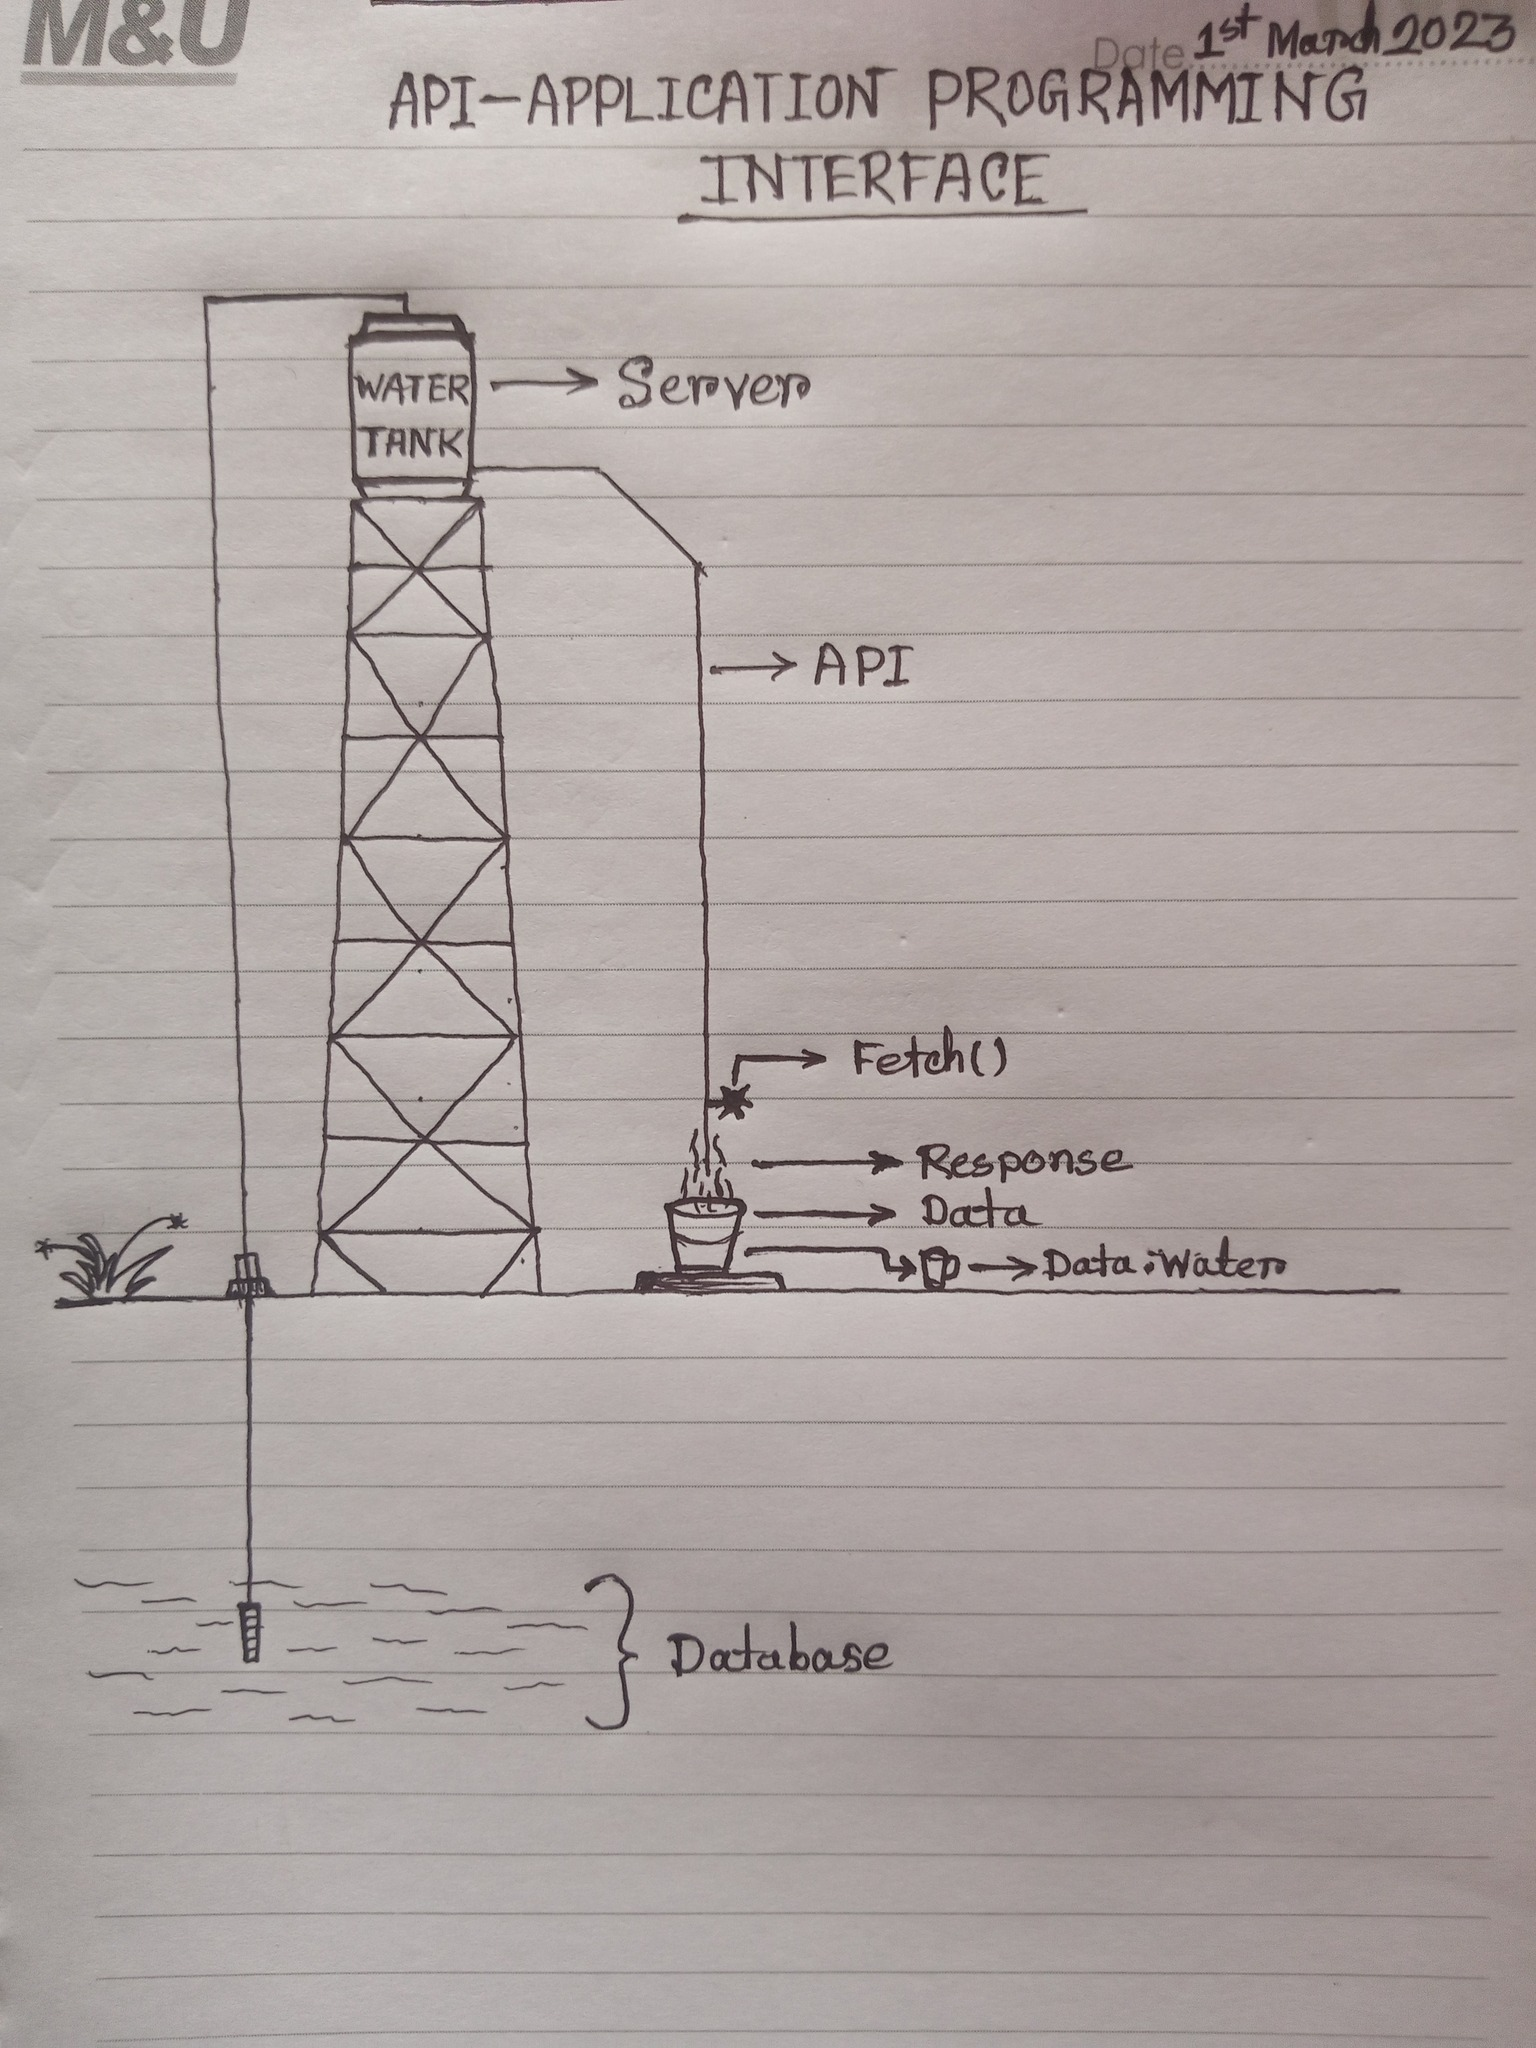 M&U
Date 1st March 2023
API-APPLICATION PROGRAMMING
INTERFACE
WATER
TANK
Server
API
Fetch()
Response
Data
Data:Water
Database